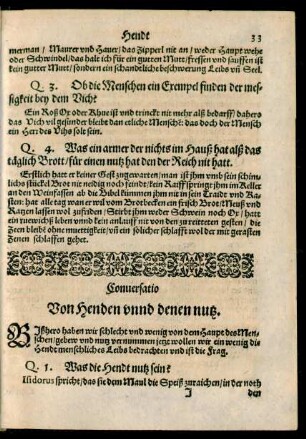 Hendt 33
merman / Maurer vnd Hawer / das Zipperl nie an / weder Haupt wehe
oder Schwindel / das halt ich für ein gutten Mutt / fressen vnd sauffen ist
kein gutter Mutt / sondern ein schandtliche beschwerung Leibs vñ Seel.
Q. 3. Ob die Menschen ein Exempel finden der mes-
sigkeit bey dem Vich?
Ein Roß Ox oder Khue ißt vnd trinckt nit mehr alß bedarff / dahero
das Vich vil gesünder bleibt dan etliche Mensche͂: das doch der Mensch
ein Herr des Vihs solt sein.
Q. 4. Was ein armer der nichts im Hauß hat alß das
täglich Brott / für einen nutz hat den der Reich nit hatt.
Erstlich hatt er keiner Gest zugewarten / man ist ihm vmb sein schim-
lichs stückel Brot nit nedig noch feindt / kein Raiff springt ihm im Keller
an den Weinfassen ab die Bibel kümmen ihm nit in sein Traidt vnd Ka-
sten: hat alle tag wan er wil vom Brotbecken ein frisch Brot / Meüß vnd
Ratzen lassen wol zufriden / Stirbt ihm weder Schwein noch Ox / hatt
ein ruewichs leben vmb kein anlauff nit von den zureitteten gesten / die
Zeen bleibt ohne muettigkeit / vñ ein solicher schlafft wol der mit gerasten
Zenen schlaffen gehet.
Conuersatio
Von Henden vnnd denen nutz.
Bißhero haben wir schlecht vnd wenig von dem Haupt des Men-
schen / gebew vnd nutz vernummen jetzt wollen wir ein wenig die
Hendt menschliches Leibs bedrachten vnd ist die Frag.
Q. 1. Was die Hendt nutz sein?
Isidorus spricht / das sie dem Maul die Speiß zuraichen / in der noth
J den